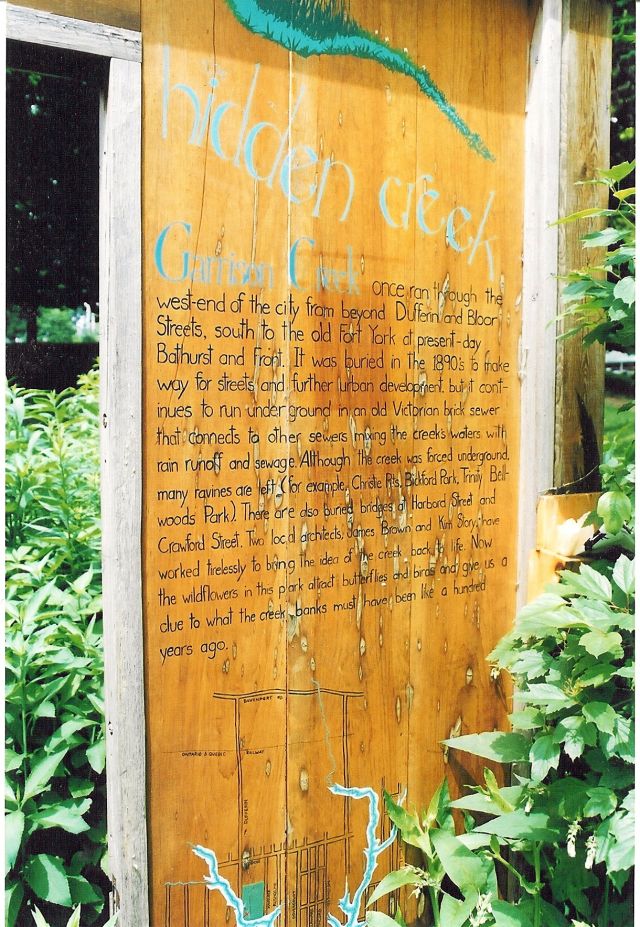 hidden creek
Garrison Creek once ran through the
west-end of the city from beyond Dufferin and Bloor
Streets, south to the old Fort York at present-day
Bathurst and Front. It was buried in the 1890's to make
way for streets and further urban development, but it cont-
inues to run underground in an old Victorian brick sewer
that connects to other sewers mixing the creek's waters with
rain runoff and sewage. Although the creek was forced underground,
many ravines are left (for example, Christie Pits, Bickford Park, Trinity Bell-
woods Park). There are also buried bridges at Harbord Street and
Crawford Street. Two local architects, James Brown and Kim Story, have
worked tirelessly to bring the idea of the creek back to life. Now
the wildflowers in this park attract butterflies and birds and give us a
clue to what the creek banks must have been like a hundred
years ago.
DAVENPORT RD.
ONTARIO & QUEBEC RAILWAY
DUFFERIN